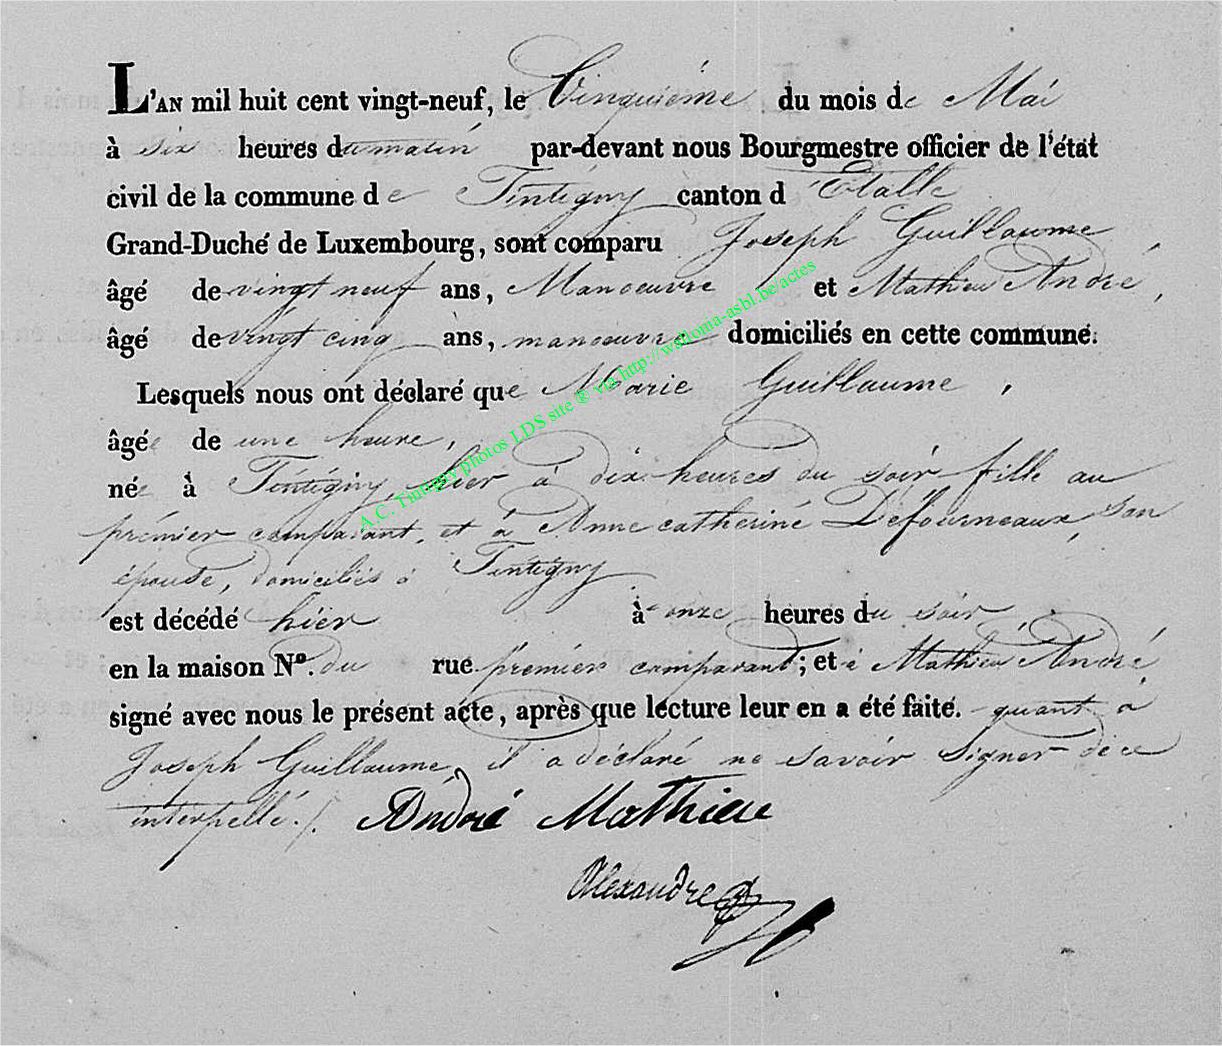 L'AN mil huit cent vingt-neuf, le Cinquième du mois de Mai
à six heures du matin par-devant nous Bourgmestre officier de l'état
civil de la commune de Tintigny canton d'Etalle
Grand-Duché de Luxembourg, sont comparu Joseph Guillaume
âgé de vingt neuf ans, Manoeuvre et Mathieu André,
âgé de vingt cinq ans, manoeuvre domiciliés en cette commune.
Lesquels nous ont déclaré que Marie Guillaume,
âgée de une heure,
née à Tintigny, hier à dix heures du soir fille au
prémier comparant, et à Anne catherine Defourneaux, son
épouse, domiciliés à Tintigny
est décédé hier à onze heures du soir
en la maison No. du rue prémier comparant; et à Mathieu André
signé avec nous le présent acte, après que lecture leur en a été faite. quant à
Joseph Guillaume, il a déclaré ne savoir signer de ce
interpellé./.
André Mathieu
Alexandre
A.C. Tintigny photos LDS site ® via http://walloma-asbl.be/actes